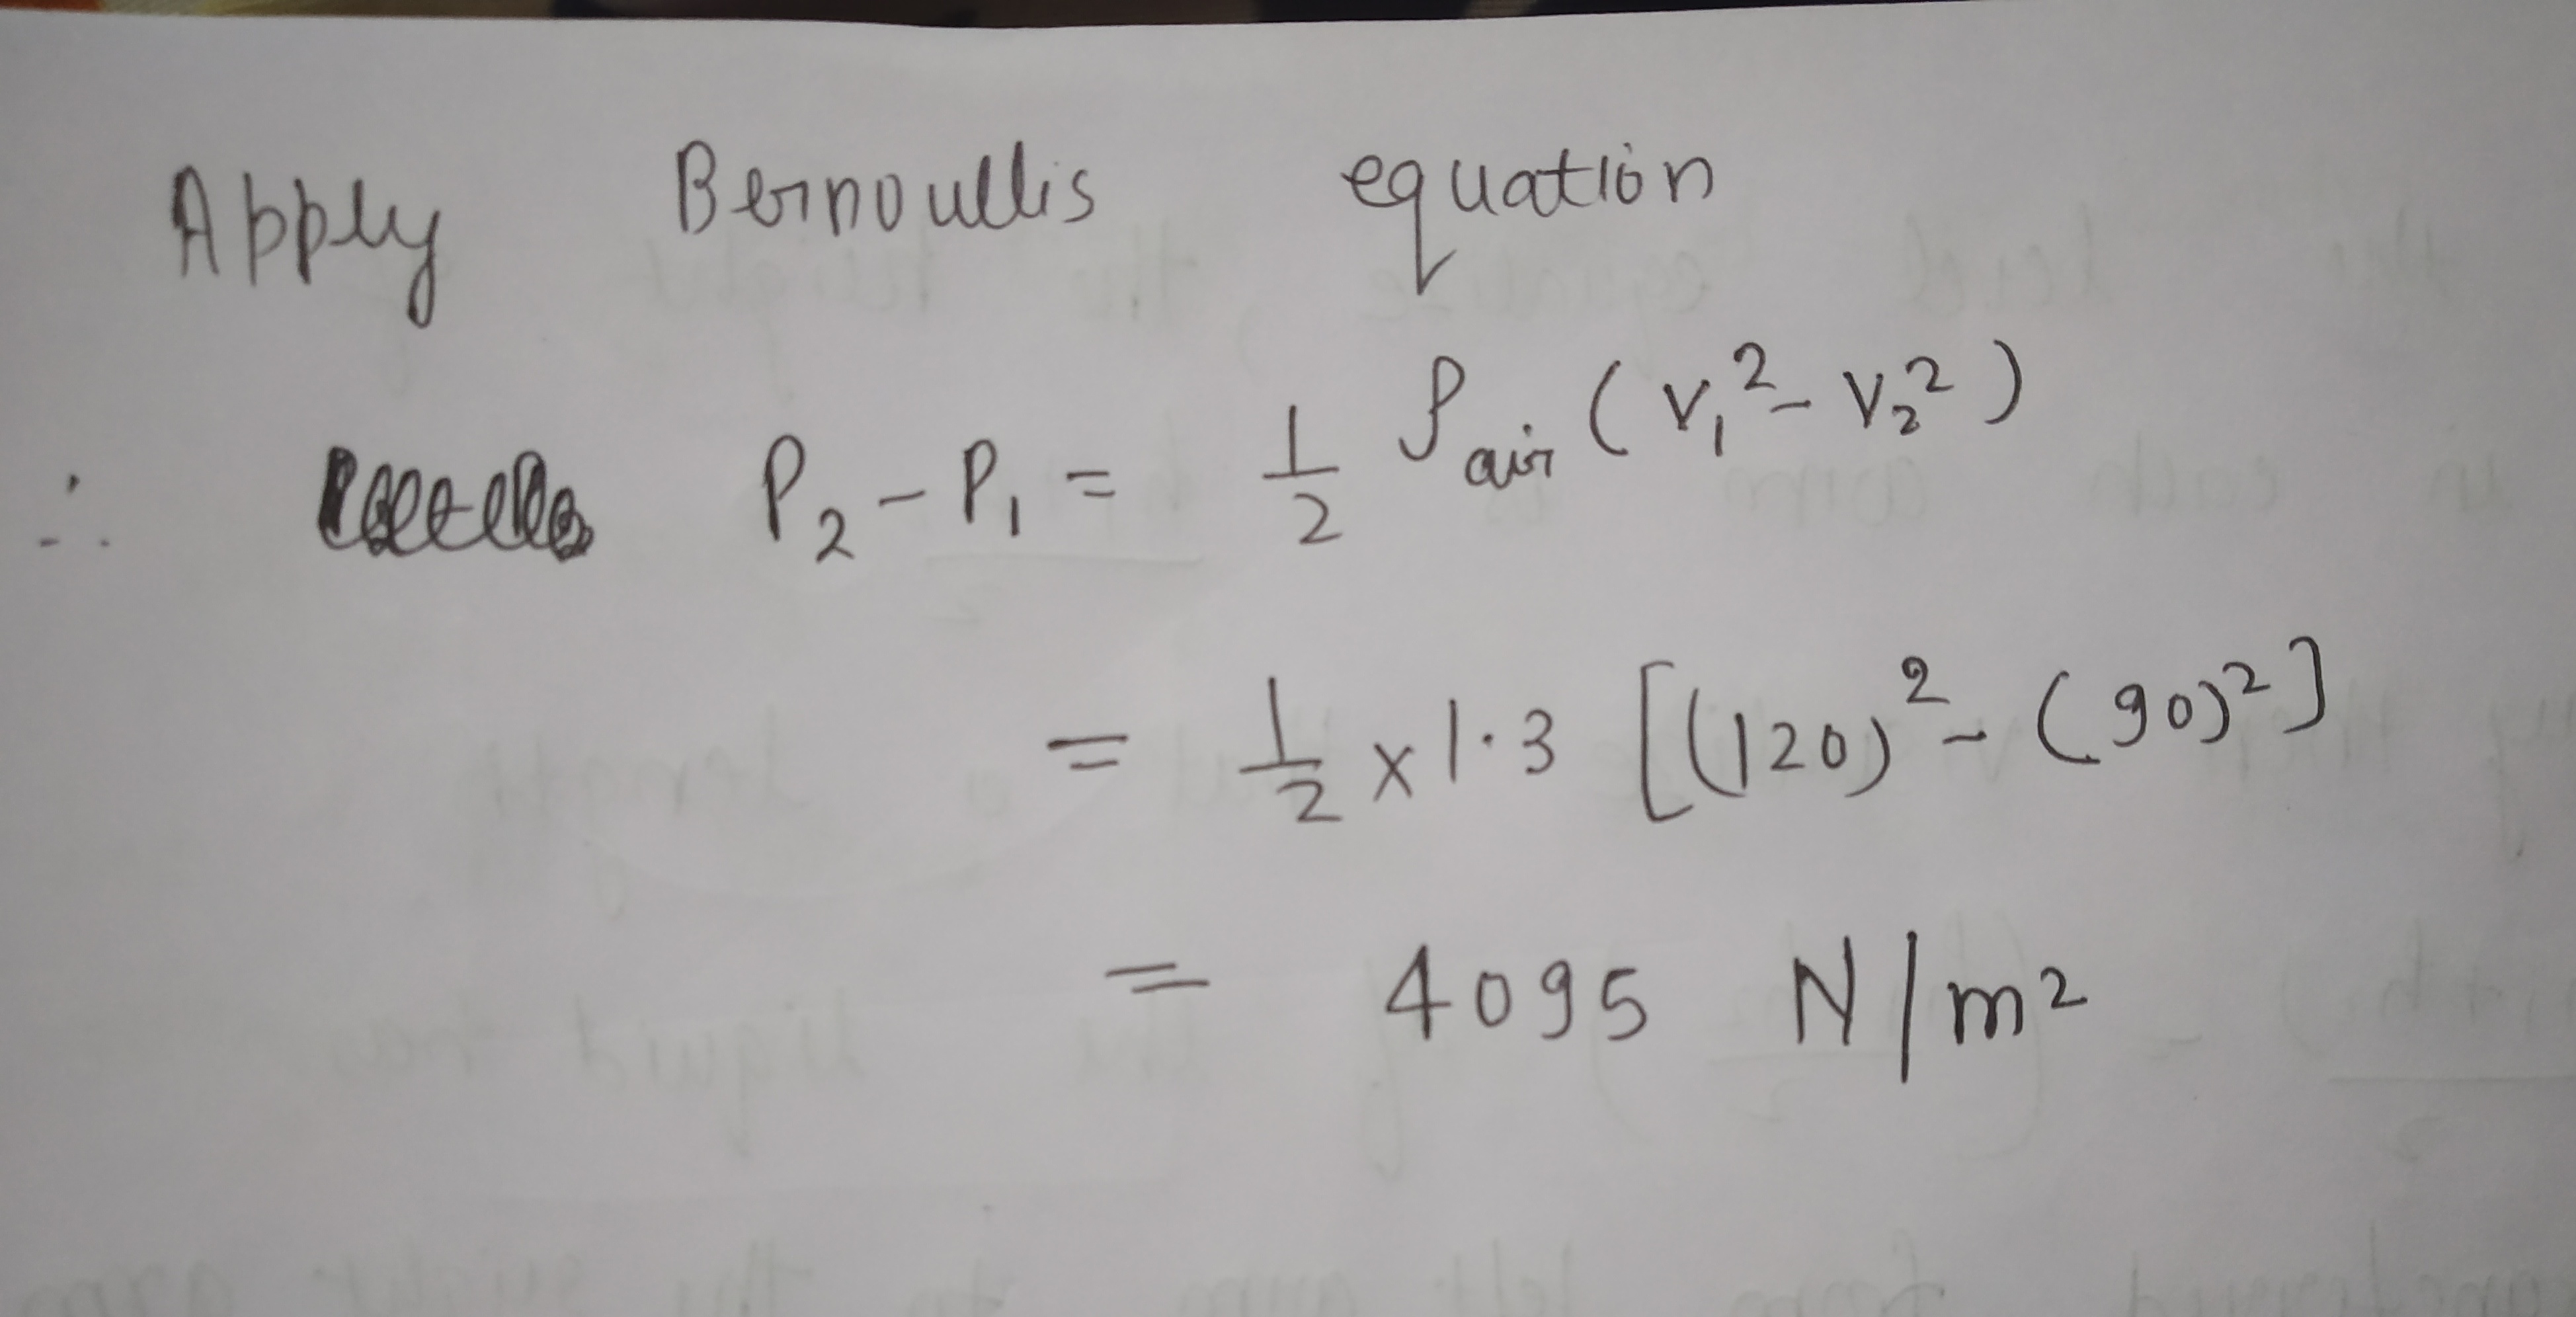 Apply Bernoullis equation
∴ P₂ - P₁ = 1/2 ρair (v₁² - v₂²)
= 1/2 × 1.3 [(120)² - (90)²]
= 4095 N/m²